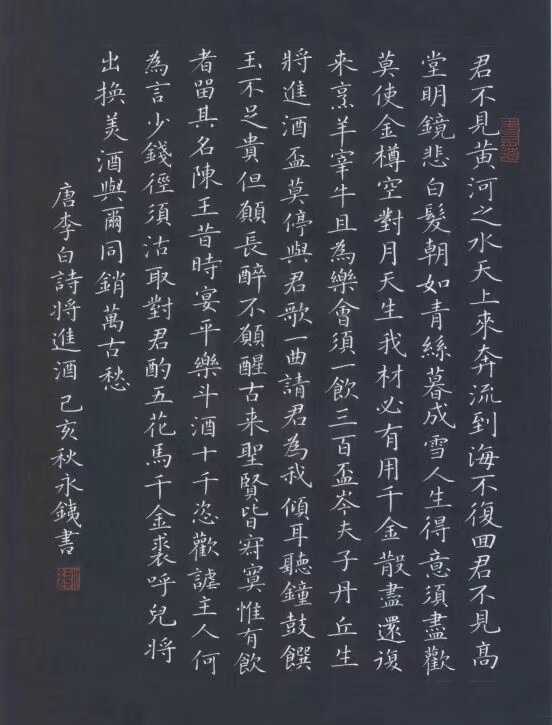 君不見黃河之水天上來奔流到海不復回君不見高
堂明鏡悲白髮朝如青絲暮成雪人生得意須盡歡
莫使金樽空對月天生我材必有用千金散盡還復
來烹羊宰牛且為樂會須一飲三百盃岑夫子丹丘生
將進酒盃莫停與君歌一曲請君為我傾耳聽鐘鼓饌
玉不足貴但願長醉不願醒古來聖賢皆寂寞惟有飲
者留其名陳王昔時宴平樂斗酒十千恣歡謔主人何
為言少錢徑須沽取對君酌五花馬千金裘呼兒將
出換美酒與爾同銷萬古愁
唐李白詩將進酒己亥秋永銕書